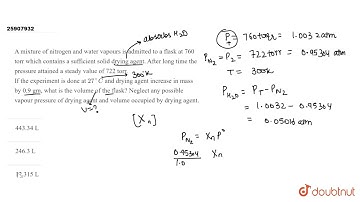 25907932
absorbs H₂O
A mixture of nitrogen and water vapours is admitted to a flask at 760
torr which contains a sufficient solid drying agent. After long time the
pressure attained a steady value of 722 torr.
300k
If the experiment is done at 27° C and drying agent increase in mass
by 0.9 gm, what is the volume of the flask? Neglect any possible
vapour pressure of drying agent and volume occupied by drying agent.
V=?
[Xₙ]
443.34 L
246.3 L
12.315 L
P_T → 760torr = 1.0032 atm
P_N₂ = P₂ = 722torr = 0.95304 atm
T = 300k
P_H₂O = P_T - P_N₂
= 1.0032 - 0.95304
= 0.05016 atm
P_N₂ = Xₙ P°
0.95304
1.0
Xₙ
doubtnut